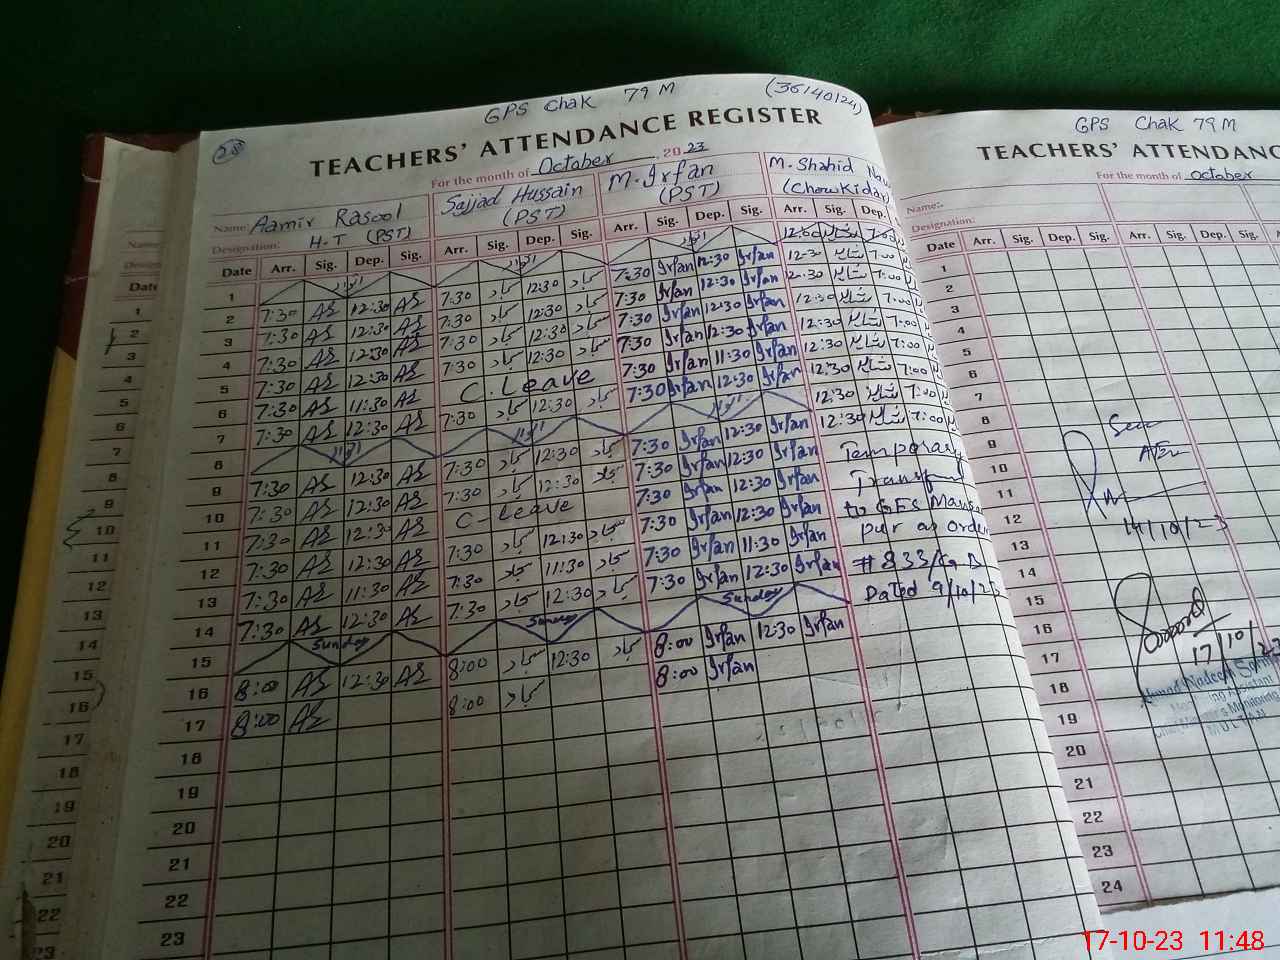 GPS Chak 79 M (36140124)
28
TEACHERS' ATTENDANCE REGISTER
For the month of October 2023
Name: Aamir Rasool Sajjad Hussain M. Irfan M. Shahid
Designation: H.T (PST) (PST) (PST) (Chowkidar)
Date Arr. Sig. Dep. Sig. Arr. Sig. Dep. Sig. Arr. Sig. Dep. Sig. Arr. Sig. Dep.
1 اتوار اتوار اتوار
2 7:30 AS 12:30 AS 7:30 سجاد 12:30 سجاد 7:30 Irfan 12:30 Irfan 12:30 شاہد 7:00
3 7:30 AS 12:30 AS 7:30 سجاد 12:30 سجاد 7:30 Irfan 12:30 Irfan 12:30 شاہد 7:00
4 7:30 AS 12:30 AS 7:30 سجاد 12:30 سجاد 7:30 Irfan 12:30 Irfan 12:30 شاہد 7:00
5 7:30 AS 12:30 AS 7:30 سجاد 12:30 سجاد 7:30 Irfan 12:30 Irfan 12:30 شاہد 7:00
6 7:30 AS 11:30 AS C. Leave 7:30 Irfan 11:30 Irfan 12:30 شاہد 7:00
7 7:30 AS 12:30 AS 7:30 سجاد 12:30 سجاد 7:30 Irfan 12:30 Irfan 12:30 شاہد 7:00
8 اتوار اتوار اتوار 12:30 شاہد 7:00
9 7:30 AS 12:30 AS 7:30 سجاد 12:30 سجاد 7:30 Irfan 12:30 Irfan 12:30 شاہد 7:00
10 7:30 AS 12:30 AS 7:30 سجاد 12:30 سجاد 7:30 Irfan 12:30 Irfan Temporary
11 7:30 AS 12:30 AS C. Leave 7:30 Irfan 12:30 Irfan
12 7:30 AS 12:30 AS 7:30 سجاد 12:30 سجاد 7:30 Irfan 12:30 Irfan to GES
13 7:30 AS 11:30 AS 7:30 سجاد 11:30 سجاد 7:30 Irfan 11:30 Irfan
14 7:30 AS 12:30 AS 7:30 سجاد 12:30 سجاد 7:30 Irfan 12:30 Irfan
15 Sunday Sunday Sunday Dated 9/10/23
16 8:00 AS 12:30 AS 8:00 سجاد 12:30 سجاد 8:00 Irfan 12:30 Irfan
17 8:00 AS 8:00 سجاد 8:00 Irfan
18
19
20
21
22
23
GPS Chak 79 M
TEACHERS' ATTENDANC
For the month of October
Name:-
Designation:
Date Arr. Sig. Dep. Sig. Arr. Sig. Dep. Sig. A
1
2
3
4
5
6
7
8
9
10
11
12
13
14
15
16
17
18
19
20
21
22
23
24
14/10/23
17/10/23
Name
Date
1
2
3
4
5
6
7
8
9
10
11
12
13
14
15
16
17
18
19
20
21
22
23
17-10-23 11:48